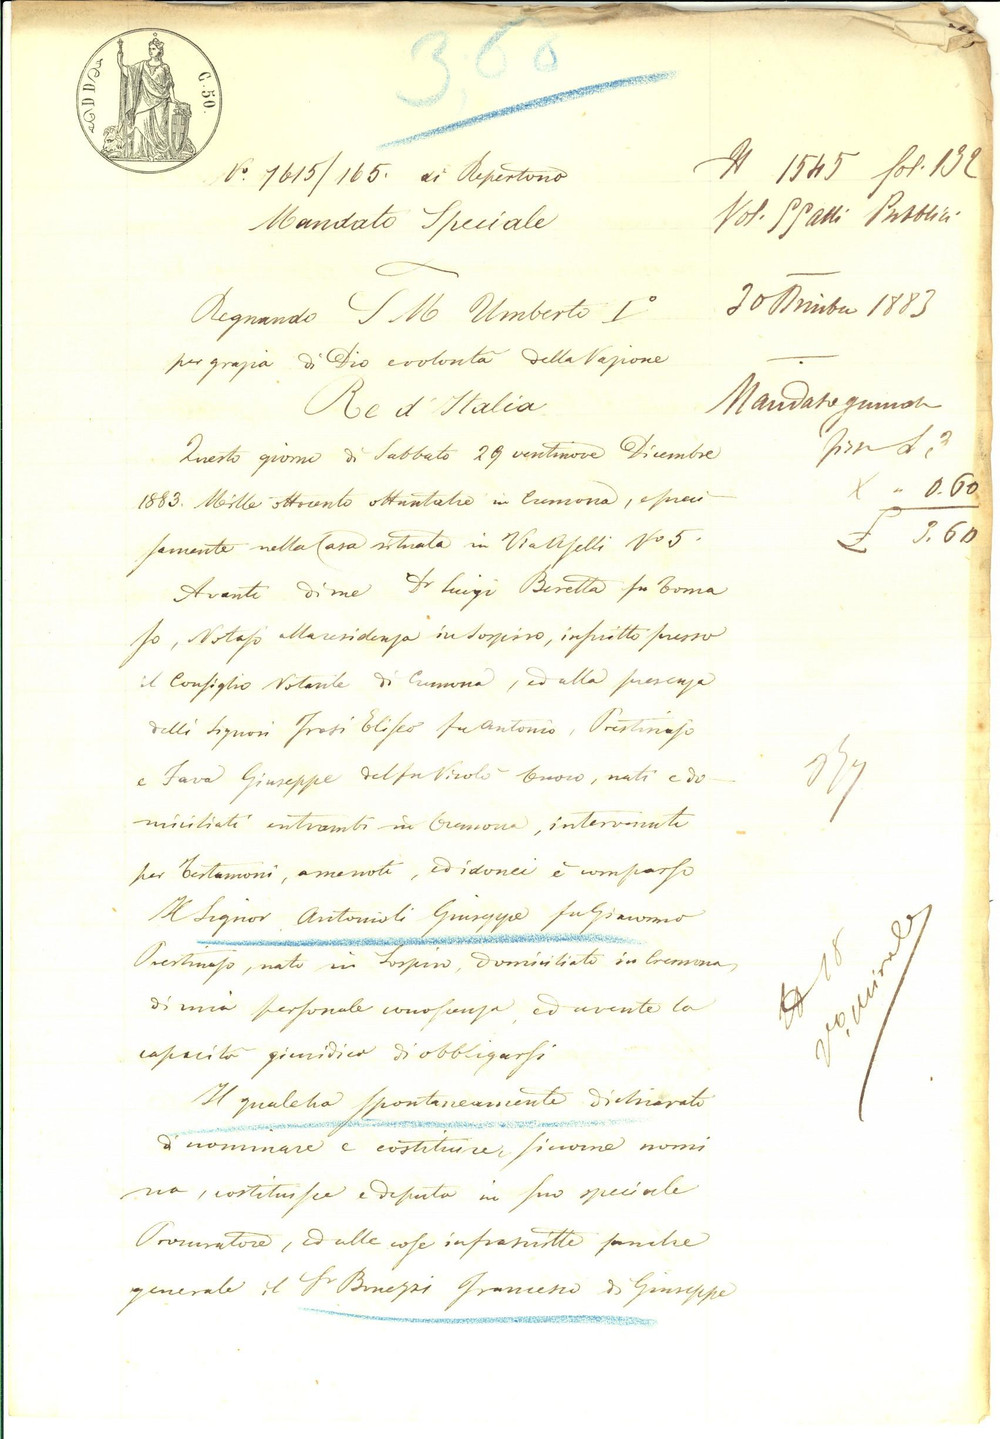 3,60
C. 50.
N.° 1615/165. di Repertorio
Mandato Speciale
Regnando S M Umberto I°
per grazia di Dio e volontà della Nazione
Re d'Italia
Questo giorno di Sabbato 29 ventinove Dicembre
1883. Mille ottocento ottantatre in Cremona, e preci-
samente nella Casa situata in Via Aselli N° 5.
Avanti di me Dr Luigi Beretta fu Toma
so, Notajo alla residenza in Sospiro, inscritto presso
il Consiglio Notarile di Cremona, ed alla presenza
delli Signori Frosi Eliseo fu Antonio, Prestinajo
e Fava Giuseppe del fu Nicolò Cuoco, nati e do-
miciliati entrambi in Cremona, intervenuti
per Testimoni, amenoti, ed idonei è comparso
Il Signor Antonioli Giuseppe fu Giacomo
Prestinajo, nato in Sospiro, domiciliato in Cremona,
di mia personale conoscenza, ed avente la
capacità giuridica di obbligarsi
Il quale ha spontaneamente dichiarato
di nominare e costituire, siccome nomi
na, costituisce e deputa in suo speciale
Procuratore, ed alle cose infrascritte pur anche
generale il Sr Binezzi Francesco di Giuseppe
N 1545 fol. 132
Vol. Atti Pubblici
30 Dicembre 1883
Mandato
fisse L. 3
X " 0.60
£ 3.60
N 18